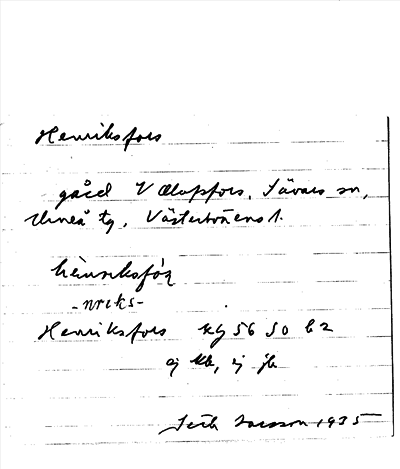 Henriksfors
gård V Olofsfors, Sävars sn,
Umeå tg, Västerbottens l.
hènriksfóṣ
-nriks-
Henriksfors kg 56 50 b2
ej kb, ej jb
Seth Larsson 1935